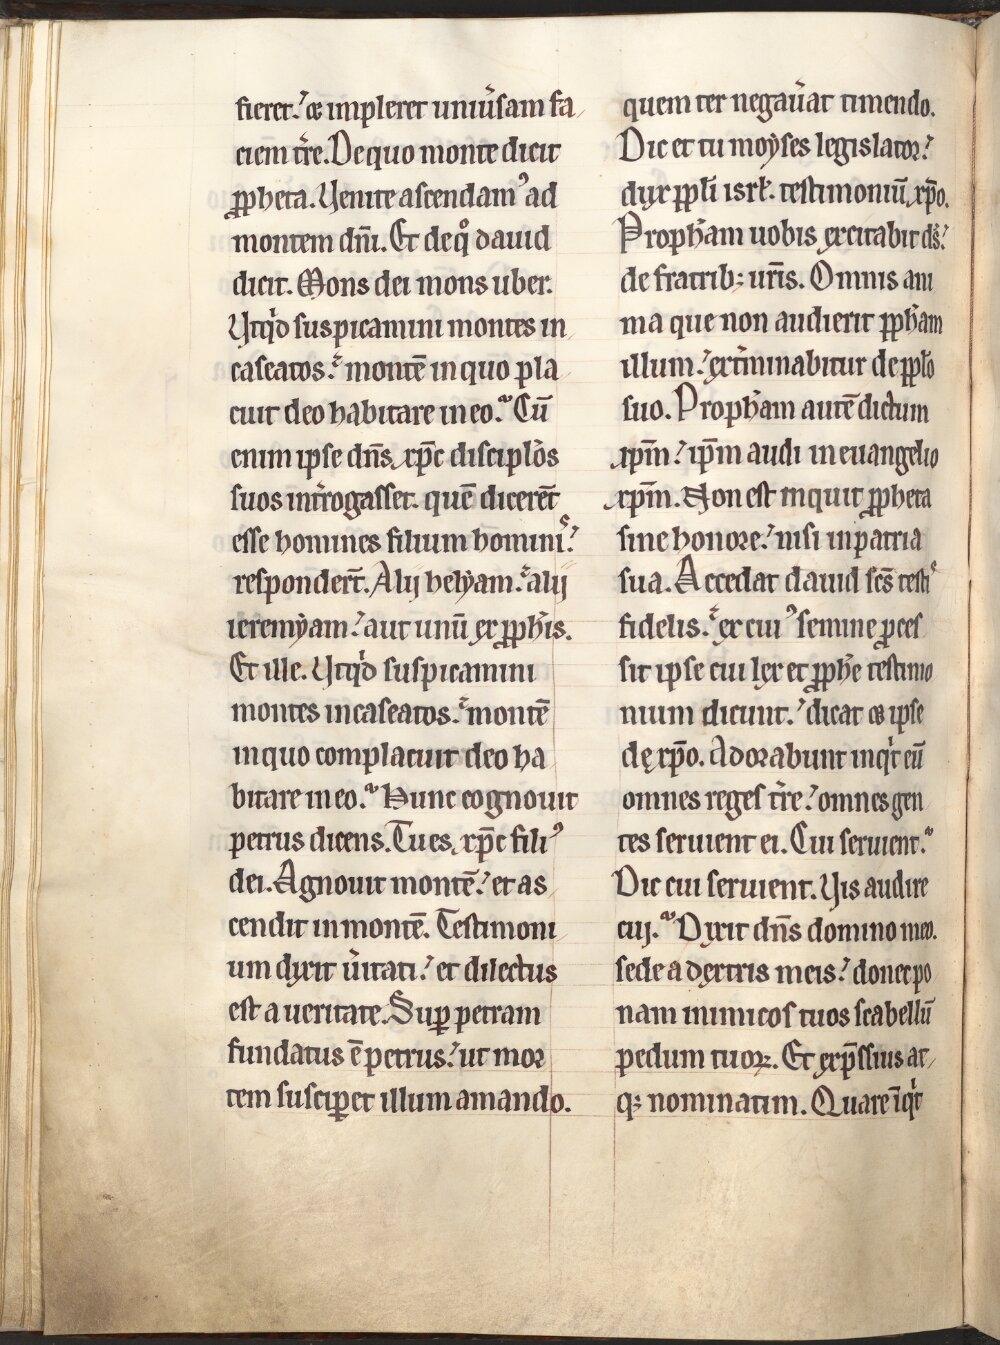 fieret. et impleret uniũsam fa
ciem t̃re. De quo monte dicit
ꝓpheta. Venite ascendamꝰ ad
montem dñi. Et de qͦ dauid
dicit. Mons dei mons uber.
Vtqͥd suspicamini montes in
caseatos. montẽ in quo pla
cuit deo habitare in eo. Cũ
enim ipse dñs xp̃c disciplõs
suos int̃rogasset. quẽ dicerẽt
esse homines filium hominis.
responder̃t. Alij helyam. alij
ieremyam. aut unũ ex ꝓph̃is.
Et ille. Vtqͥd suspicamini
montes incaseatos. montẽ
in quo complacuit deo ha
bitare in eo. Hunc cognouit
petrus dicens. Tu es xp̃c filiꝰ
dei. Agnouit montẽ. et as
cendit in montẽ. Testimoni
um dixit ũitati. et dilectus
est a ueritate. Suꝑ petram
fundatus ẽ petrus. ut mor
tem susciꝑet illum amando.
quem ter negaũat timendo.
Dic et tu moyses legislator.
dux ppl̃i isrl̃. testimoniũ xp̃o.
Proph̃am uobis excitabit ds̃.
de fratrib; ur̃is. Omnis ani
ma que non audierit ꝓph̃am
illum. ext̃minabitur de ppl̃o
suo. Proph̃am autẽ dictum
xp̃m. ip̃m audi in euangelio
xp̃m. Non est inquit ꝓpheta
sine honore. nisi in patria
sua. Accedat dauid sc̃s testis
fidelis. ex cuiꝰ semine ꝓces
sit ipse cui lex et ꝓph̃e testimo
nium dicunt. dicat et ipse
de xp̃o. Adorabunt inqͥt eũ
omnes reges t̃re. omnes gen
tes seruient ei. Cui seruient.
Dic cui seruient. Vis audire
cuj. Dixit dñs domino meo.
sede a dextris meis. donec po
nam inimicos tuos scabellũ
pedum tuoꝝ. Et exp̃ssius at
q; nominatim. Quare ĩqͥt